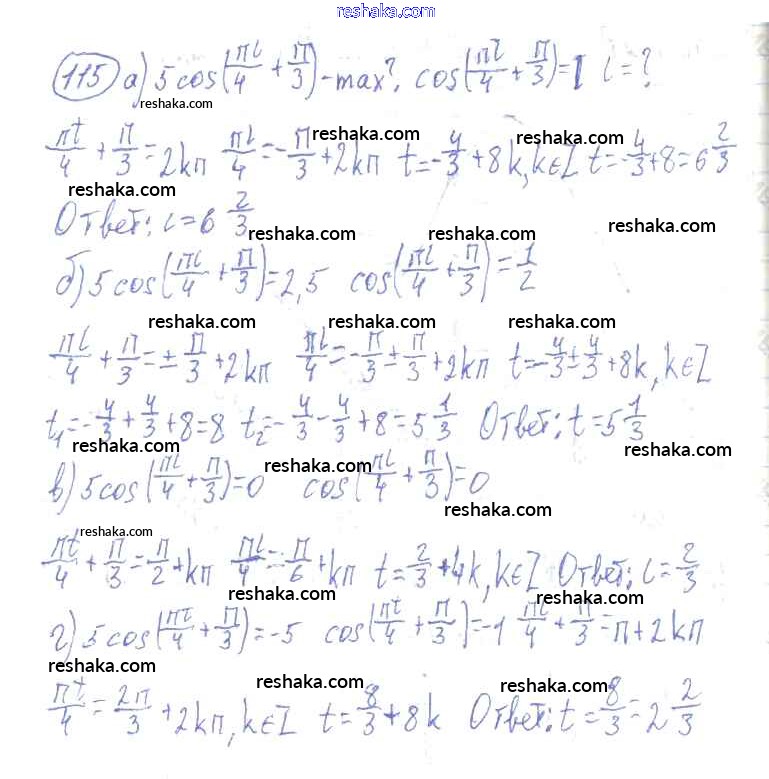 reshaka.com
115 а) 5cos(πt/4 + π/3) - max?. cos(πt/4 + π/3) = 1 t = ?
reshaka.com
πt/4 + π/3 = 2kπ πt/4 = -π/3 + 2kπ t = -4/3 + 8k, k∈Z t = -4/3 + 8 = 6 2/3
reshaka.com reshaka.com
reshaka.com reshaka.com
Ответ: t = 6 2/3
reshaka.com reshaka.com reshaka.com
б) 5cos(πt/4 + π/3) = 2,5 cos(πt/4 + π/3) = 1/2
reshaka.com reshaka.com reshaka.com
πt/4 + π/3 = ± π/3 + 2kπ πt/4 = -π/3 ± π/3 + 2kπ t = -4/3 ± 4/3 + 8k, k∈Z
t₁ = -4/3 + 4/3 + 8 = 8 t₂ = -4/3 - 4/3 + 8 = 5 1/3 Ответ: t = 5 1/3
reshaka.com reshaka.com reshaka.com
в) 5cos(πt/4 + π/3) = 0 cos(πt/4 + π/3) = 0
reshaka.com reshaka.com
πt/4 + π/3 = π/2 + kπ πt/4 = π/6 + kπ t = 2/3 + 4k, k∈Z Ответ: t = 2/3
reshaka.com reshaka.com
г) 5cos(πt/4 + π/3) = -5 cos(πt/4 + π/3) = -1 πt/4 + π/3 = π + 2kπ
reshaka.com reshaka.com reshaka.com
πt/4 = 2π/3 + 2kπ, k∈Z t = 8/3 + 8k Ответ: t = 8/3 = 2 2/3